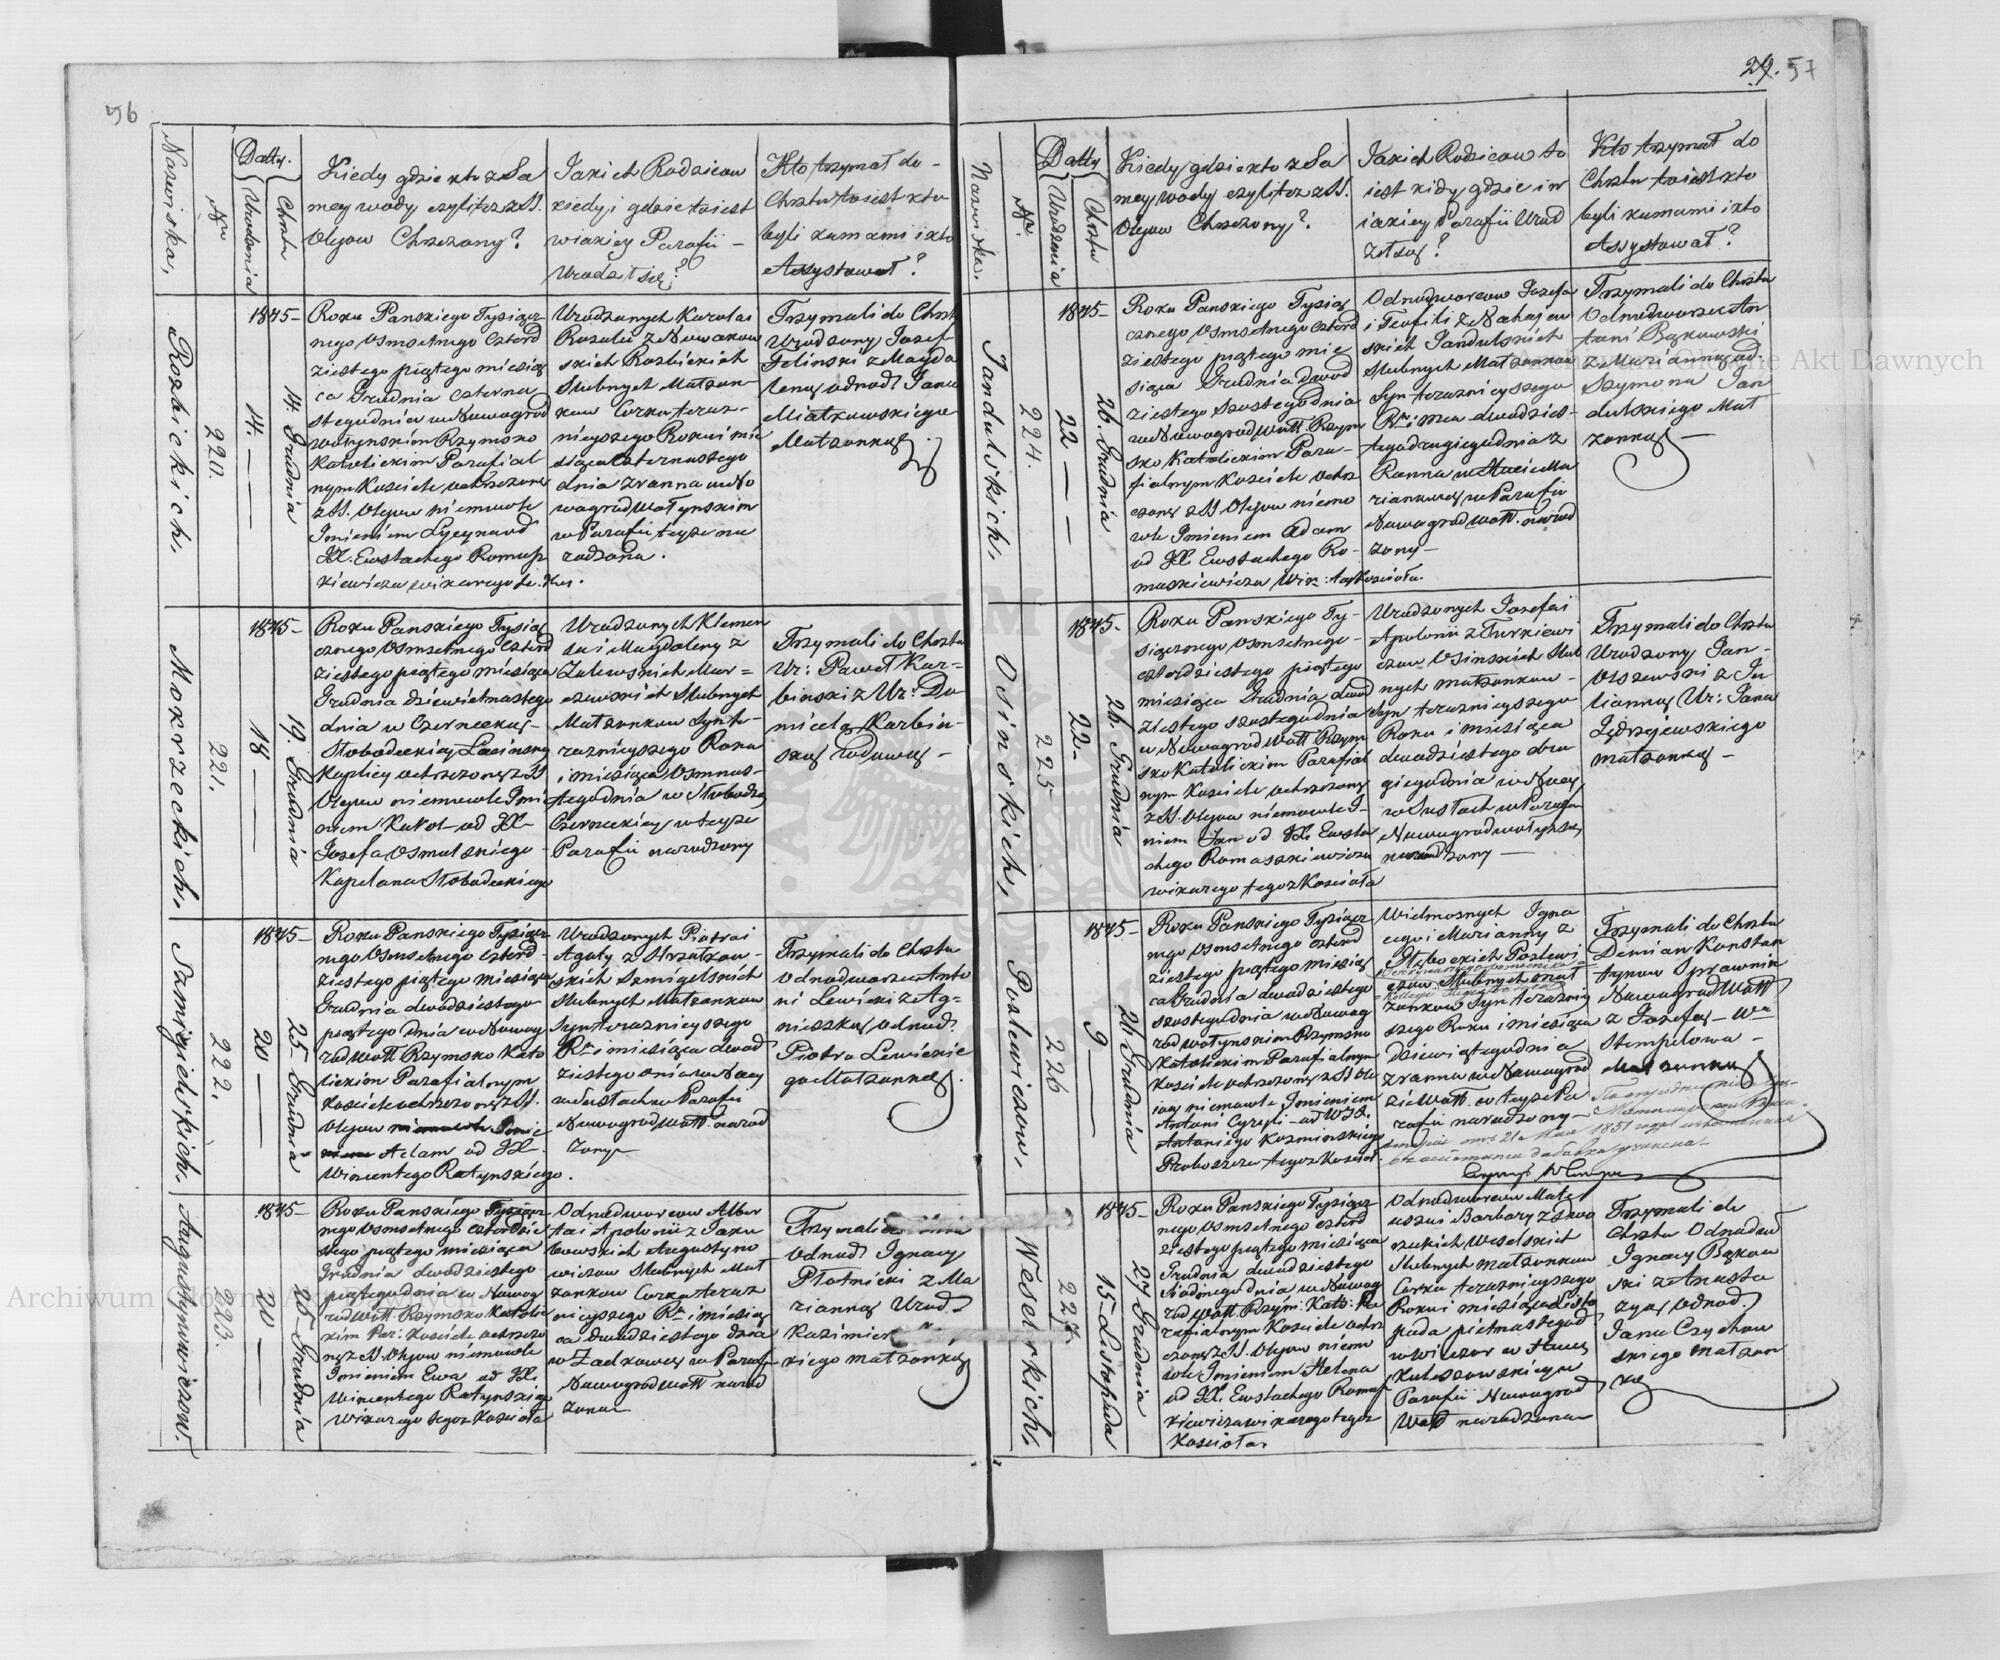 56
Nazwiska.
Nro
Datty.
Urodzenia
Chrztu
Kiedy gdzie kto z Sa
mey wody czyli też z SS.
Olejow Chrzczony?
Jakich Rodzicow
kiedy i gdzie to iest
w iakiey Parafii –
Urodził się?
Kto trzymał do –
Chrztu to iest kto
byli kumami i kto
Assystował?
Rozbickich.
220.
1845–
14.
14. Grudnia
Roku Panskiego Tysiącz
nego Osmsetnego Czterd
ziestego piątego miesią
ca Grudnia czterna
stego dnia w Nowogrod
wołynskim Rzymsko
Katolickim Parafial
nym Kosciele ochrzczono
z SS. Olejow niemowle
Imieniem
JX. Eustachego Romasz
kiewicza wikarego te. Kos.
Urodzonych Karola i
Rozalii z Nowakow
skich Rozbickich
Slubnych Małżon–
kow Corka teraz–
nieyszego Roku i mie
siąca czternastego
dnia z ranna w No
wogrodwołynskim
w Parafii teyże na
rodzona.
Trzymali do Chrzt
Urodzony Jozef
Jelinski z Magda
leną odnod. Jana
Miatkowskiego
Małżonką.
Mokrzeckich.
221.
1845–
18
19. Grudnia
Roku Panskiego Tysiąc
cznego Osmsetnego Czterd
ziestego piątego miesiąca
Grudnia dziewietnastego
dnia w Czerneckiey–
Słobodeckiey
Kaplicy ochrzczony z SS
Olejow niemowle Imie
niem Karol od JX–
Jozefa Osmulskiego–
Kapelana Słobodeckiego
Urodzonych Klemen
sa i Magdaleny z
Zalewskich Mok=
rzeckich Slubnych
Małżonkow Syn te–
raznieyszego Roku
i miesiąca Osmnas–
tego dnia w Słobodzie
Czerneckiey w teyże
Parafii narodzony
Trzymali do Chrztu
Ur: Paweł Kar–
binski z Ur: Do
micelą Karbin–
ską wdową –
Szmigielskich.
222.
1845–
20
25– Grudnia
Roku Panskiego Tysiącz
nego Osmsetnego czterd–
ziestego piątego miesiąca
Grudnia dwudziestego–
piątego dnia w Nowog
rodwoł. Rzymsko Kato
lickim Parafialnym
Kosciele ochrzczony z SS.
Olejow niemowle Imie
niem Adam od JX–
Wincentego Ratynskiego.
Urodzonych Piotra i
Agaty z Strzałkow–
skich Szmigelskich
Slubnych Małżonkow
Syn teraznieyszego
Ru i miesiąca dwud
ziestego dnia w Nowey
w Parafii
Nowogrodwoł. narod
zony–
Trzymali do Chrztu
Odnodworzec Anto
ni Lewicki z Ag=
nieszką odnod.
Piotra Lewickie
go Małżonką.
Augustynowiczow.
223.
1845–
20
25– Grudnia
Roku Panskiego Tysiącz–
nego Osmsetnego Czterdzie
stego piątego miesiąca
Grudnia dwudziestego
piątego dnia w Nowog
rodwoł. Rzymsko Katolic
kim Par: Kosciele ochrzczo
ną z SS. Olejow niemowle
Imieniem Ewa od JX.
Wincentego Ratynskiego
Wikarego tegoż Koscioła
Odnodworcow Alber
ta i Apolonii z Jaku
bowskich Augustyno
wiczow Slubnych Mał
żonkow Corka teraz
nieyszego Ru i miesią
ca dwudziestego dnia
w Zadkowey w Paraf
Nowogrodwoł. narod
zona–
Trzymali do
Odnod. Ignacy
Płotnicki z Ma
rianną Urod.
Kazimier
kiego małżonką
29. 57
Nazwiska.
Nro.
Datty
Urodzenia
Chrztu
Kiedy, gdzie kto z Sa
mey wody czyli też z SS.
Olejow Chrzczony?
Jakich Rodzicow to
iest kidy gdzie i w
iakiey Parafii Urod
ził się?
Kto trzymał do
Chrztu to iest kto
byli kumami i kto
Assystował?
Jandulskich.
224.
1845–
22
26. Grudnia
Roku Panskiego Tysiąc
cznego Osmsetnego Czterd
ziestego piątego mie
siąca Grudnia dwud
ziestego szostego dnia
w Nowogrodwoł. Rzym
sko Katolickim Para–
fialnym Kosciele ochrz
czony z SS Olejow niemo
wle Imieniem Adam
od JX Eustachego Ro–
maszkiewicza Wik: teg Koscioła.
Odnodworcow Jozefa
i Teofili z Nahajew
skich Jandulskich
Slubnych Małżonkow
Syn teraznieyszego
Ru i mca dwudzies–
tego drugiego dnia z
Ranna w Hucie Ma
rianowey w Parafii
Nowogrodwoł. narod
zony–
Trzymali do Chrztu
Odnodworzec An
toni Bąkowski
z Marianną od.
Szymona Jan
dulskiego Mał
żonką –
Osinskich,
225
1845–
22–
26. Grudnia
Roku Panskiego Ty–
siącznego Osmsetnego–
czterdziestego piątego
miesiąca Grudnia dwud
ziestego szostego dnia
w Nowogrodwoł Rzym
sko Katolickim Parafial
nym Kosciele ochrzczony
z SS. Olejow niemowle I–
niem Jan od JX Eusta
chego Romaszkiewicza
wikarego tegoż Koscioła
Urodzonych Jozefa i
Apolonii z Turkiewi
czow Osinskich Slub
nych małżonkow–
Syn teraznieyszego
Roku i miesiąca
dwudziestego dru
giego dnia w Nowey
w Parafii
Nowogrodwołynskiey
narodzony –
Trzymali do Chrztu
Urodzony Jan–
Olszewski z Ju
lianną Ur: Jana
Jędrzejewskiego
małżonką –
Pozlewiczow.
226
1845–
9
26 Grudnia
Roku Panskiego Tysiącz
nego Osmsetnego czterd
ziestego piątego miesią
ca Grudnia dwudziestego
szostego dnia w Nowog
rodwołynskim Rzymsko
Katolickim Parafialnym
Kosciele ochrzczony z SS Ole
iow niemowle Imieniem
Antoni Cyryli– od WJX.
Antoniego Kozminskiego
Proboszcza tegoż Koscioł.
Wielmożnych Igna
cego i Marianny z
Głębockich Pozlewi
czow Slubnych małż
żonkow Syn terazniey
szego Roku i miesiąca
dziewiątego dnia
z ranna w Nowogrod
zie Woł. w teyże Pa
rafii narodzony–
Trzymali do Chrztu
Demian Konstan
tynow Sprawnik
Nowogrodwoł
z Jozefą – Wa
Stempelowa–
Małżonką
21 Мая 1851
Weselskich.
227.
1845–
15– Listopada
27 Grudnia
Roku Panskiego Tysiącz
nego Osmsetnego czterd
ziestego piątego miesiąca
Grudnia dwudziestego
siodmego dnia w Nowog
rodwoł. Rzym: Kato: Pa
rafialnym Kosciele ochrz
czoną z SS. Olejow niemo
wle Imieniem Helena
od JX. Eustachego Romasz
kiewicza wikarego tegoż
Koscioła.
Odnodworcow Mate
usza i Barbary z Skoo
rzukich Weselskich
Slubnych małżonkow
Corka teraznieyszego
Roku i miesiąca Listo
pada pietnastego d
w wieczor w Hucie
Kuleszowskiey w
Parafii Nowogrod
Woł narodzona–
Trzymali do
Chrztu Odnodwo
Ignacy Bąkow
ski z Anasta
zyą Odnod.
Jana Czychow
skiego małżon
ką
Archiwum Główne Akt Dawnych